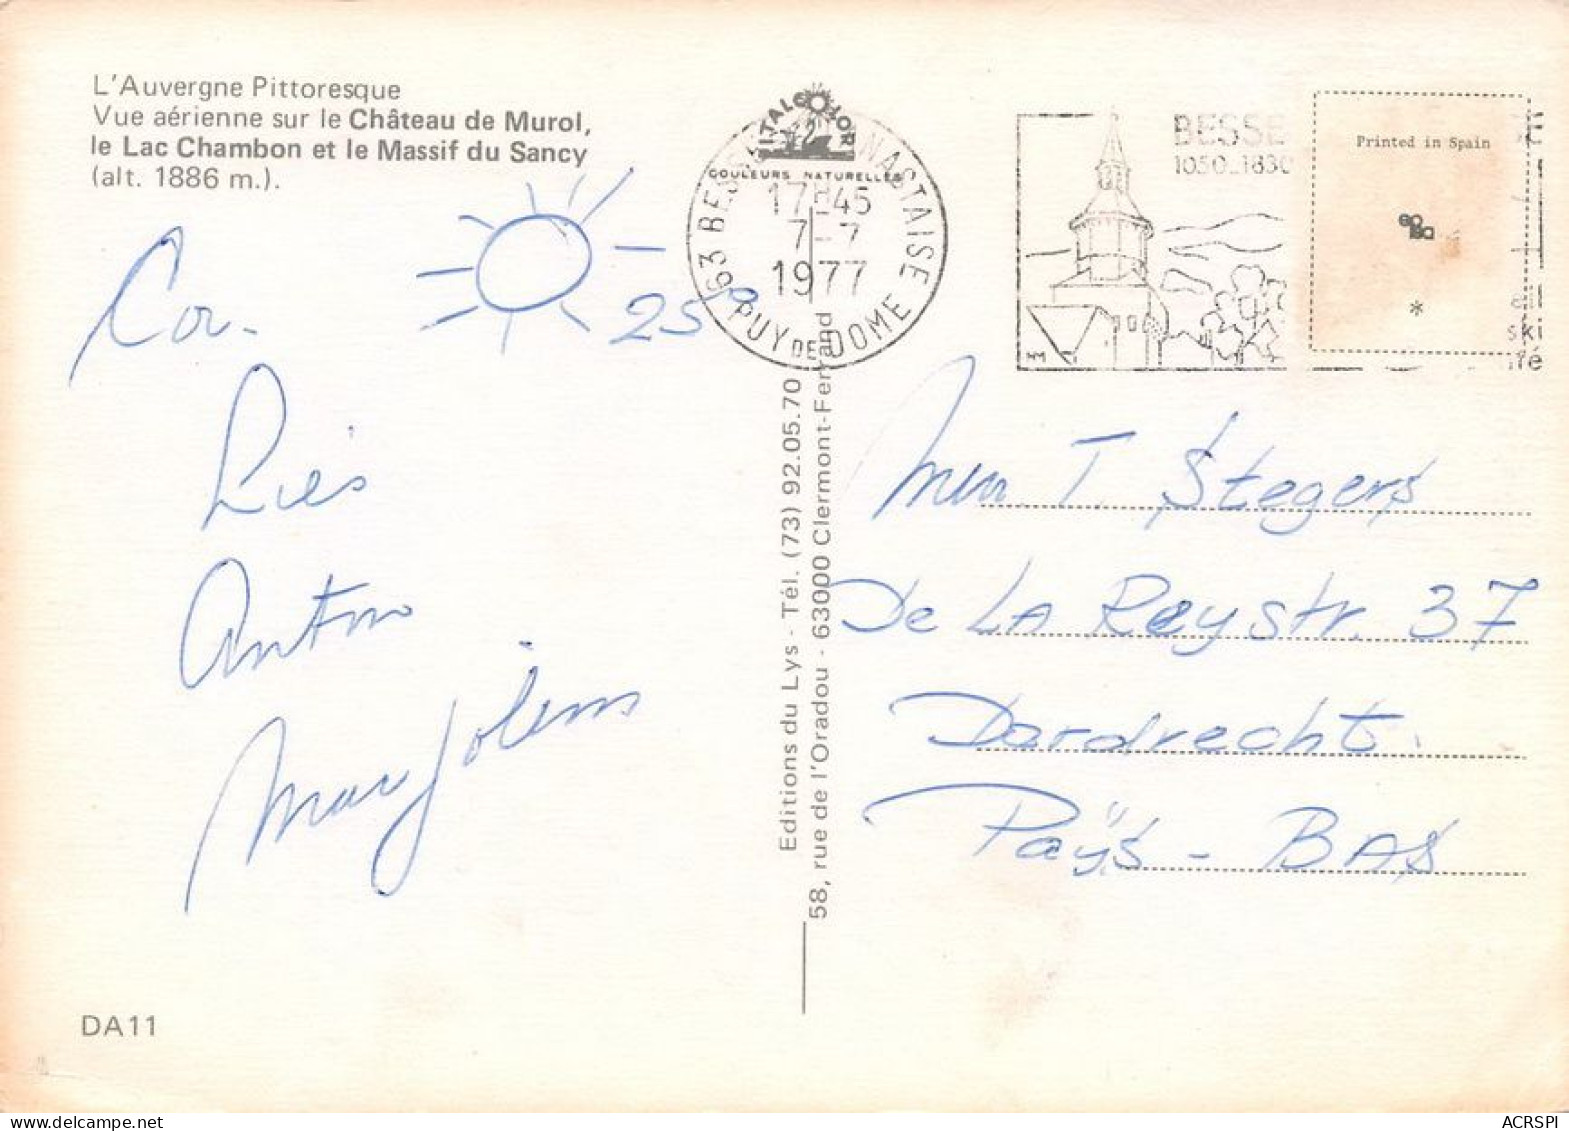 L'Auvergne Pittoresque
Vue aérienne sur le Château de Murol,
le Lac Chambon et le Massif du Sancy
(alt. 1886 m.).
25°
Liés
Anton
Marjolein
DA11
Editions du Lys - Tél. (73) 92.05.70
58, rue de l'Oradou - 63000 Clermont-Ferrand
COULEURS NATURELLES
63 BESSE
17H45
7-7
1977
PUY DE DOME
BESSE
1050_1830
HM
Printed in Spain
*
ski
T. Stegers
De La Reystr. 37
Dordrecht.
Paÿs - BAS
ACRSPI